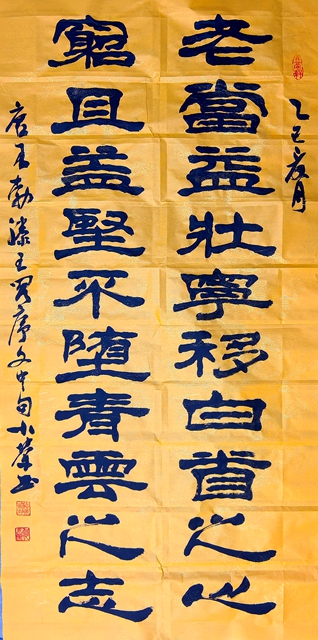 乙巳夏月
老當益壯寧移白首之心
窮且益堅不墮青雲之志
唐王勃滕王阁序文中句小榮书